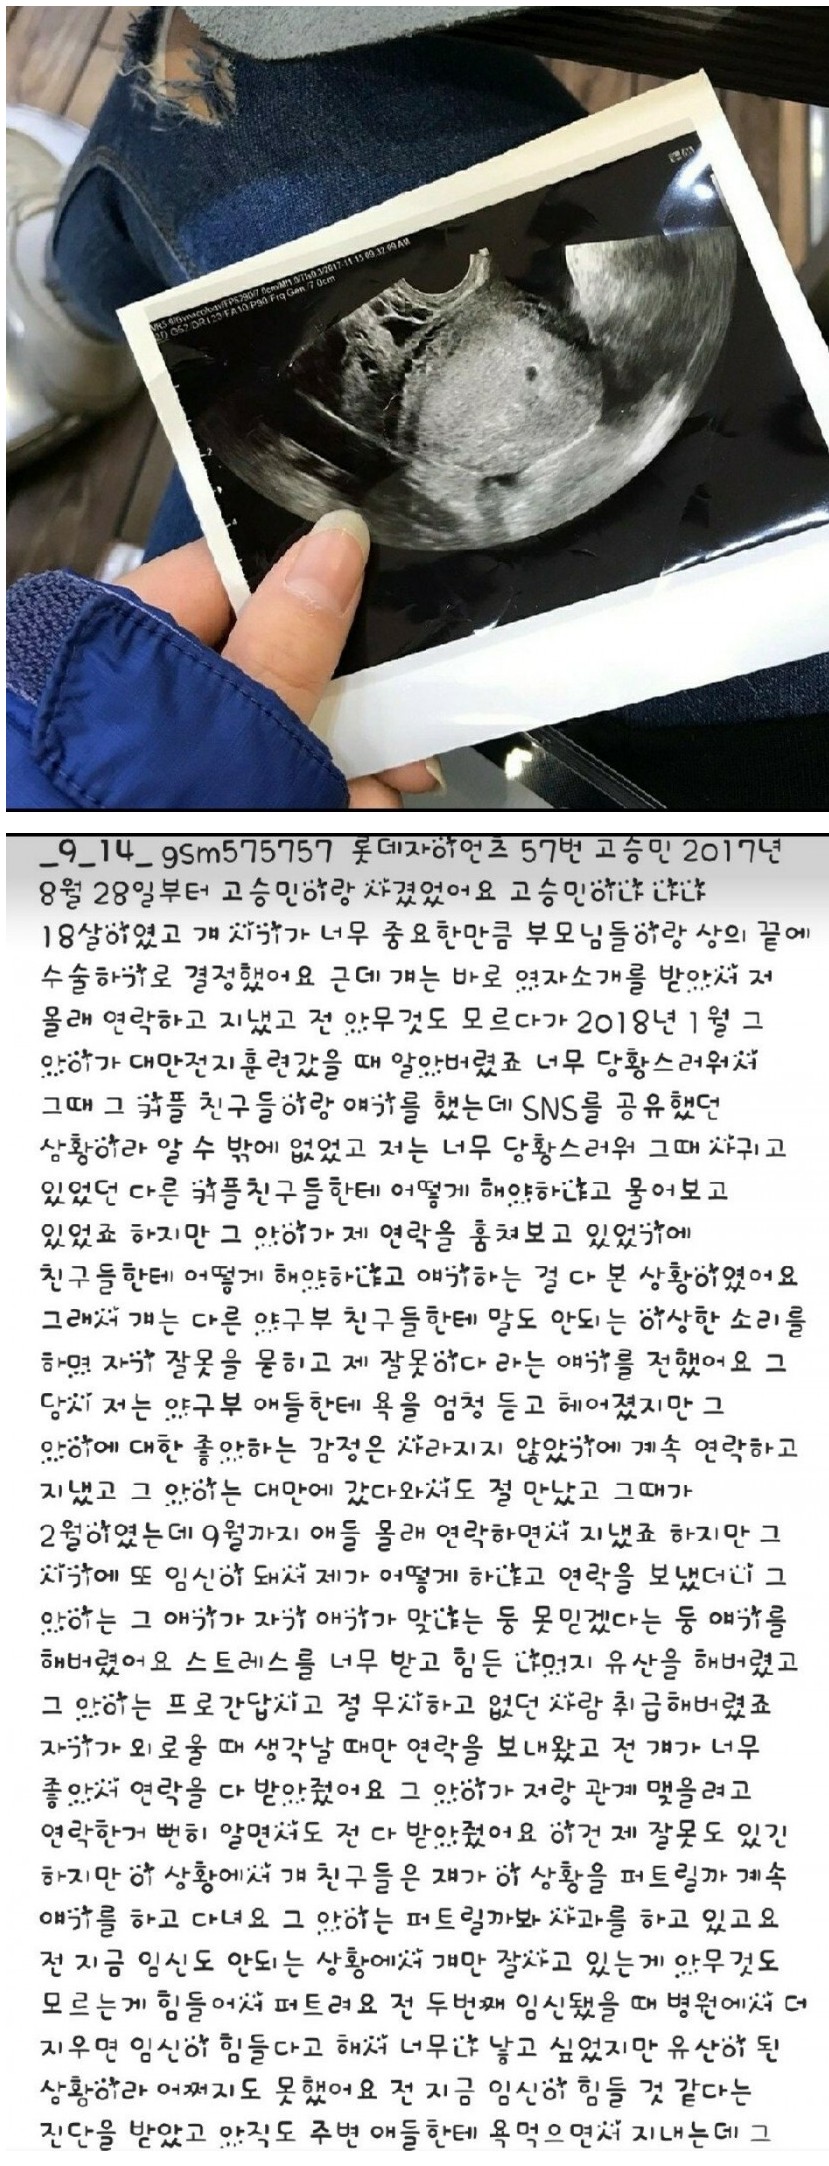 _9_14_ gsm575757 롯데자이언츠 57번 고승민 2017년
8월 28일부터 고승민이랑 사겼었어요 고승민이나 나나
18살이였고 걔 시기가 너무 중요한만큼 부모님들이랑 상의 끝에
수술하기로 결정했어요 근데 걔는 바로 여자소개를 받아서 저
몰래 연락하고 지냈고 전 아무것도 모르다가 2018년 1월 그
아이가 대만전지훈련갔을 때 알아버렸죠 너무 당황스러워서
그때 그 커플 친구들이랑 얘기를 했는데 SNS를 공유했던
상황이라 알 수 밖에 없었고 저는 너무 당황스러워 그때 사귀고
있었던 다른 커플친구들한테 어떻게 해야하냐고 물어보고
있었죠 하지만 그 아이가 제 연락을 훔쳐보고 있었기에
친구들한테 어떻게 해야하냐고 얘기하는 걸 다 본 상황이였어요
그래서 걔는 다른 야구부 친구들한테 말도 안되는 이상한 소리를
하며 자기 잘못을 묻히고 제 잘못이다 라는 얘기를 전했어요 그
당시 저는 야구부 애들한테 욕을 엄청 듣고 헤어졌지만 그
아이에 대한 좋아하는 감정은 사라지지 않았기에 계속 연락하고
지냈고 그 아이는 대만에 갔다와서도 절 만났고 그때가
2월이였는데 9월까지 애들 몰래 연락하면서 지냈죠 하지만 그
시기에 또 임신이 돼서 제가 어떻게 하냐고 연락을 보냈더니 그
아이는 그 애기가 자기 애기가 맞냐는 둥 못믿겠다는 둥 얘기를
해버렸어요 스트레스를 너무 받고 힘든 나머지 유산을 해버렸고
그 아이는 프로간답시고 절 무시하고 없던 사람 취급해버렸죠
자기가 외로울 때 생각날 때만 연락을 보내왔고 전 걔가 너무
좋아서 연락을 다 받아줬어요 그 아이가 저랑 관계 맺을려고
연락한거 뻔히 알면서도 전 다 받아줬어요 이건 제 잘못도 있긴
하지만 이 상황에서 걔 친구들은 쟤가 이 상황을 퍼트릴까 계속
얘기를 하고 다녀요 그 아이는 퍼트릴까봐 사과를 하고 있고요
전 지금 임신도 안되는 상황에서 걔만 잘사고 있는게 아무것도
모르는게 힘들어서 퍼트려요 전 두번째 임신됐을 때 병원에서 더
지우면 임신이 힘들다고 해서 너무나 낳고 싶었지만 유산이 된
상황이라 어쩌지도 못했어요 전 지금 임신이 힘들 것 같다는
진단을 받았고 아직도 주변 애들한테 욕먹으면서 지내는데 그